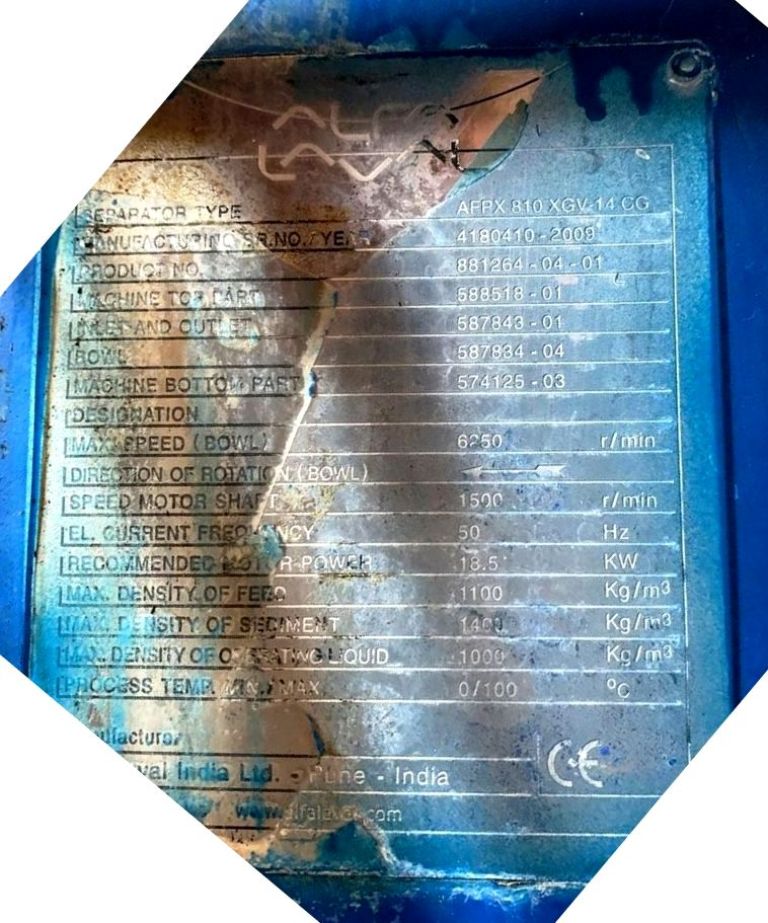 ALFA
LAVAL
SEPARATOR TYPE AFPX 810 XGV-14 CG
MANUFACTURING SR.NO./YEAR 4180410-2009
PRODUCT NO. 881264-04-01
MACHINE TOP PART 588518-01
INLET AND OUTLET 587843-01
BOWL 587834-04
MACHINE BOTTOM PART 574125-03
DESIGNATION
MAX. SPEED (BOWL) 6250 r/min
DIRECTION OF ROTATION (BOWL)
SPEED MOTOR SHAFT 1500 r/min
EL. CURRENT FREQUENCY 50 Hz
RECOMMENDED MOTOR POWER 18.5 KW
MAX. DENSITY OF FEED 1100 Kg/m³
MAX. DENSITY OF SEDIMENT 1400 Kg/m³
MAX. DENSITY OF OPERATING LIQUID 1000 Kg/m³
PROCESS TEMP. MIN./MAX. 0/100 °C
Manufacturer
Laval India Ltd. - Pune - India
CE
www.alfalaval.com